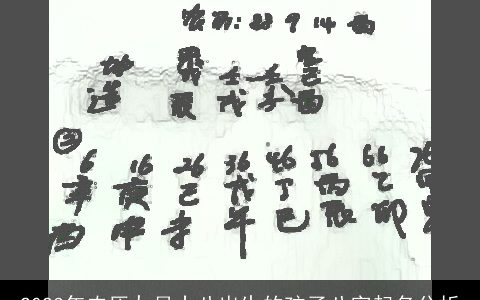 农历: 23 9 14 酉
坤 癸卯 壬 壬 己
造 戌 子 酉
③ 6 16 26 36 46 56 66 76
辛 庚 己 戊 丁 丙 乙
酉 申 未 午 巳 辰 卯
2023年农历九月十八出生的孩子八字起名分析